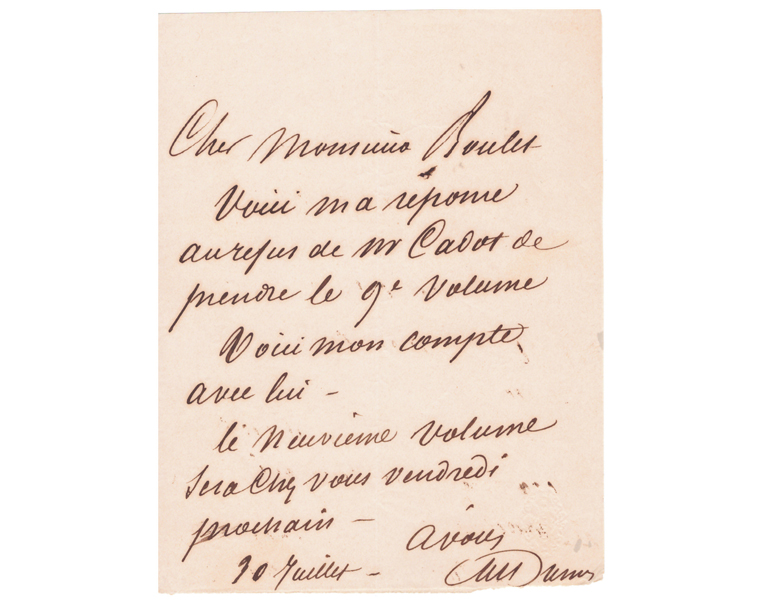 Cher Monsieur Boulet
Voici ma réponse
au refus de Mr Cadot de
prendre le 9e volume
Voici mon compte
avec lui –
le neuvième volume
sera chez vous vendredi
prochain –
à vous
30 Juillet –
Alex Dumas